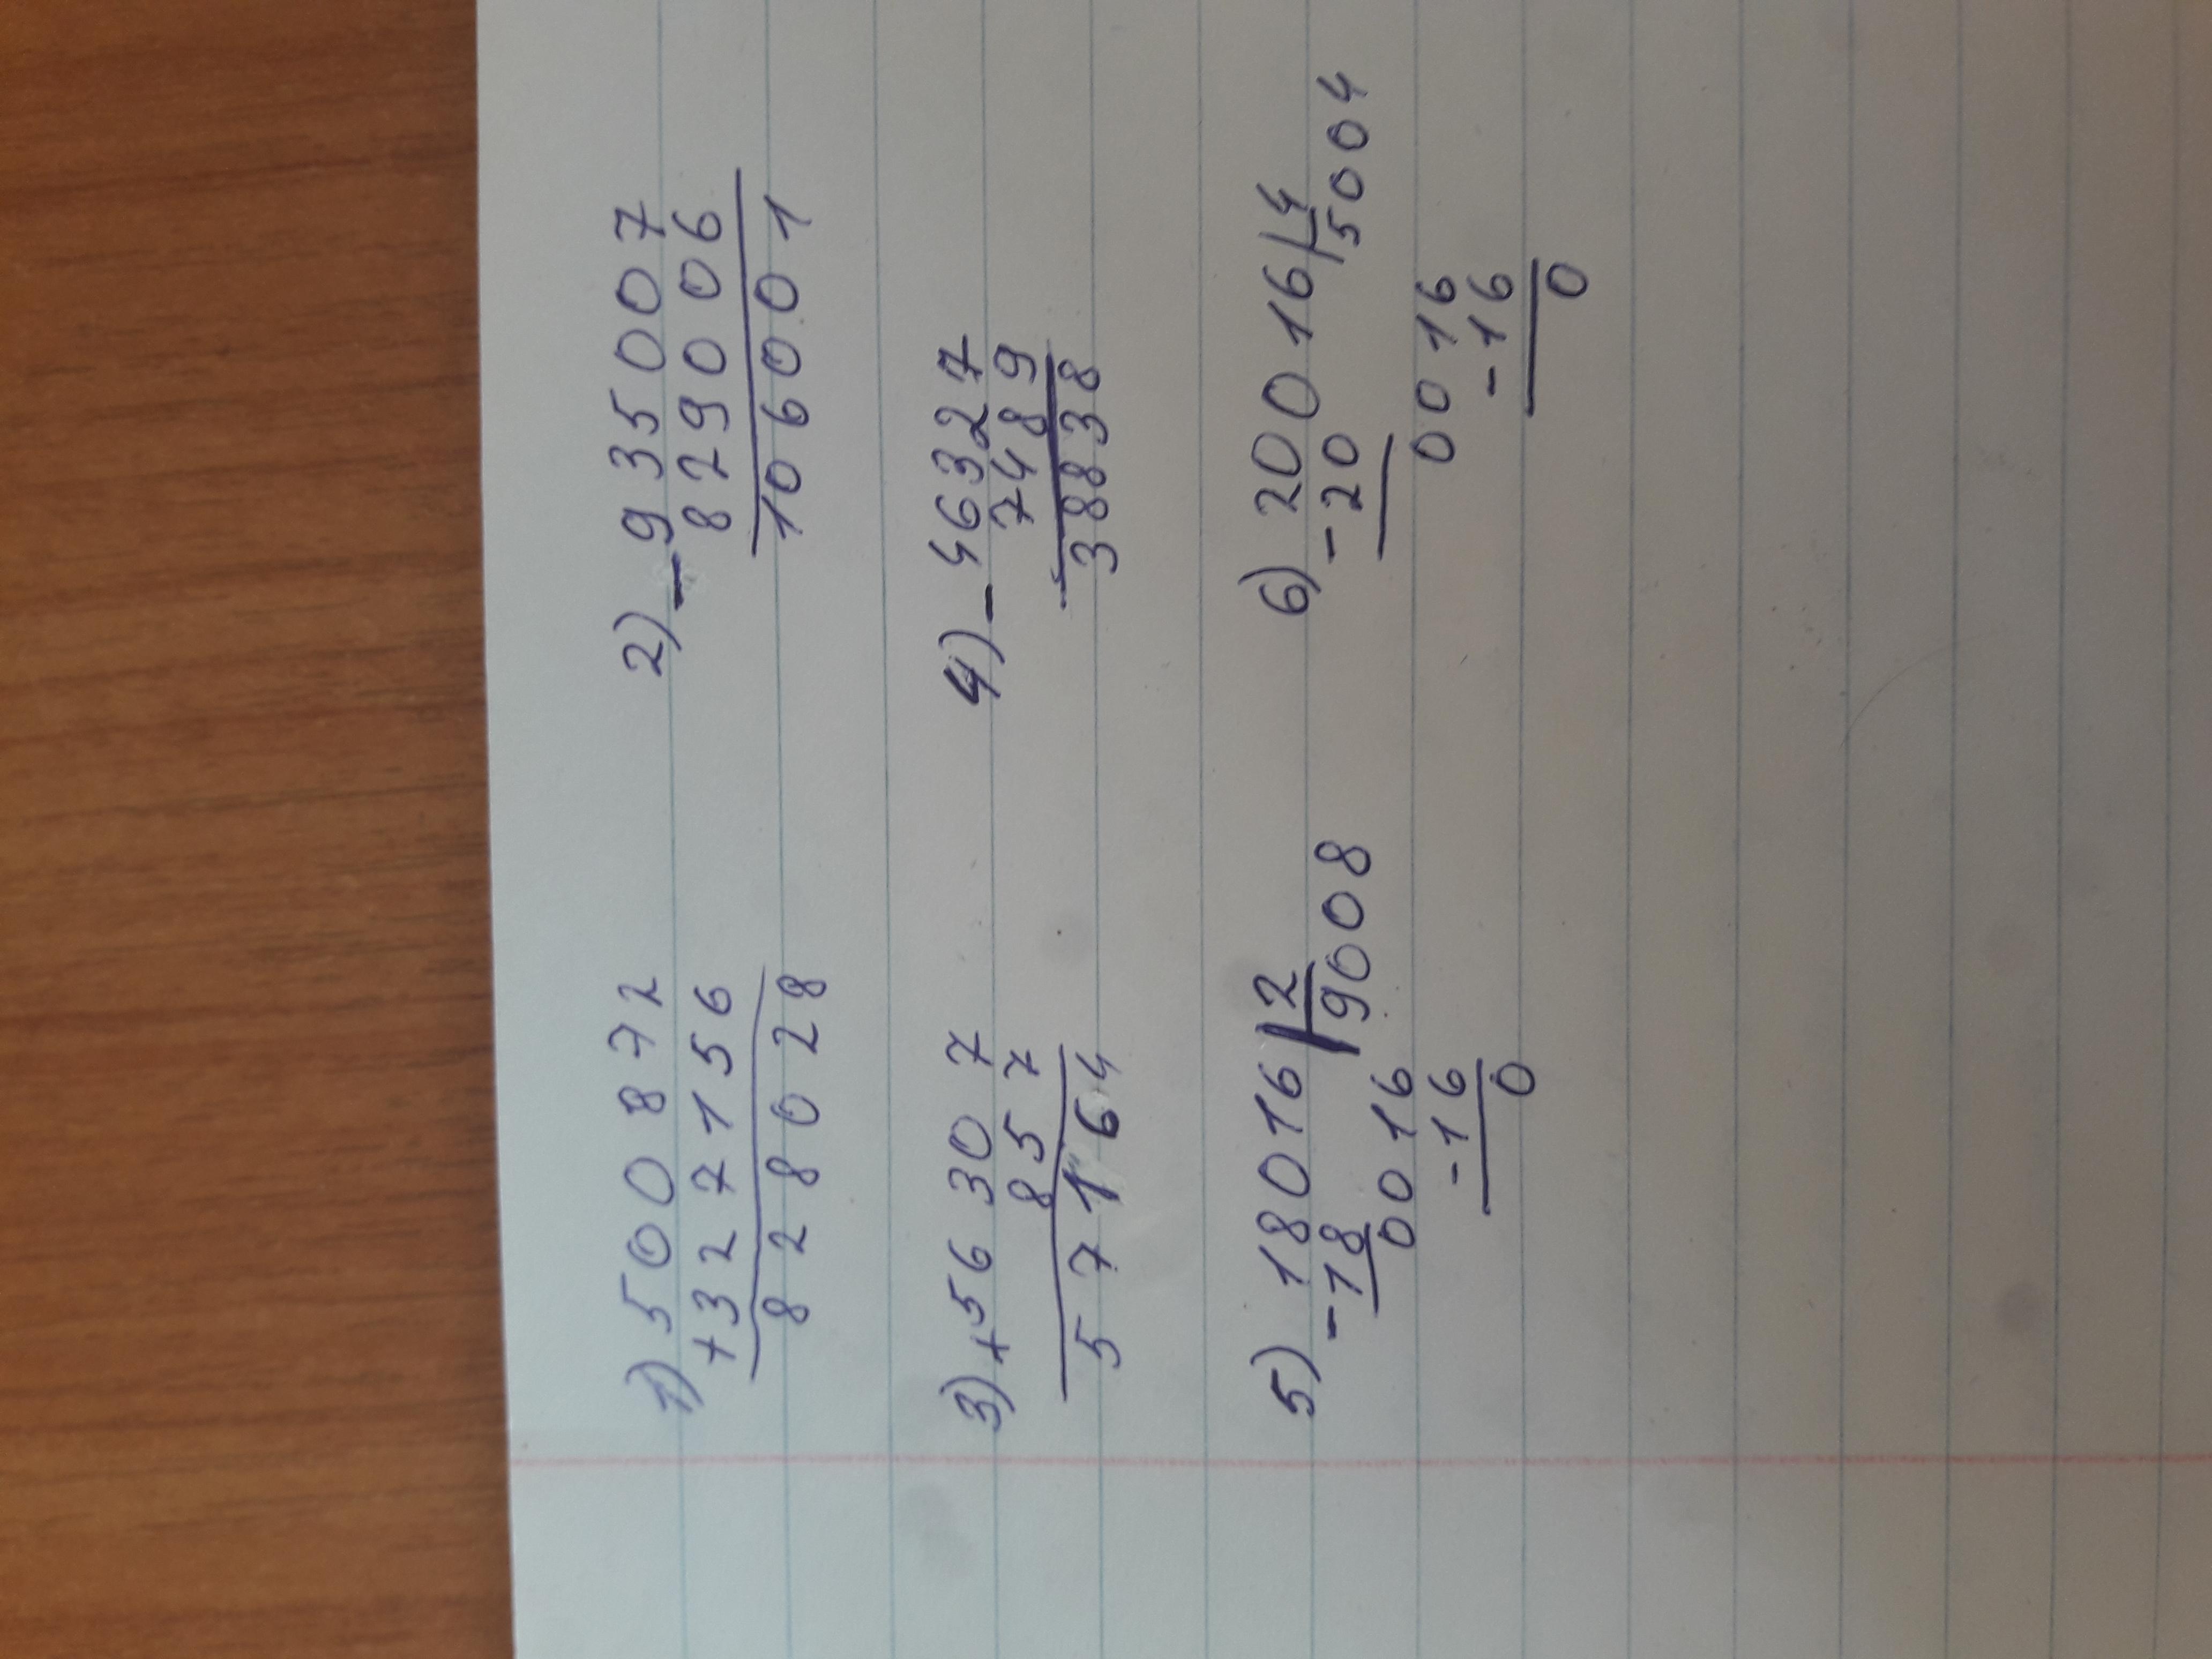 1) 500872 2) - 935007
+ 327156 829006
828028 106001
3) + 56307 4) - 46327
857 7489
57164 38838
5) 18016 | 2 6) 20016 | 4
- 18 9008 - 20 5004
0016 0016
- 16 - 16
0 0